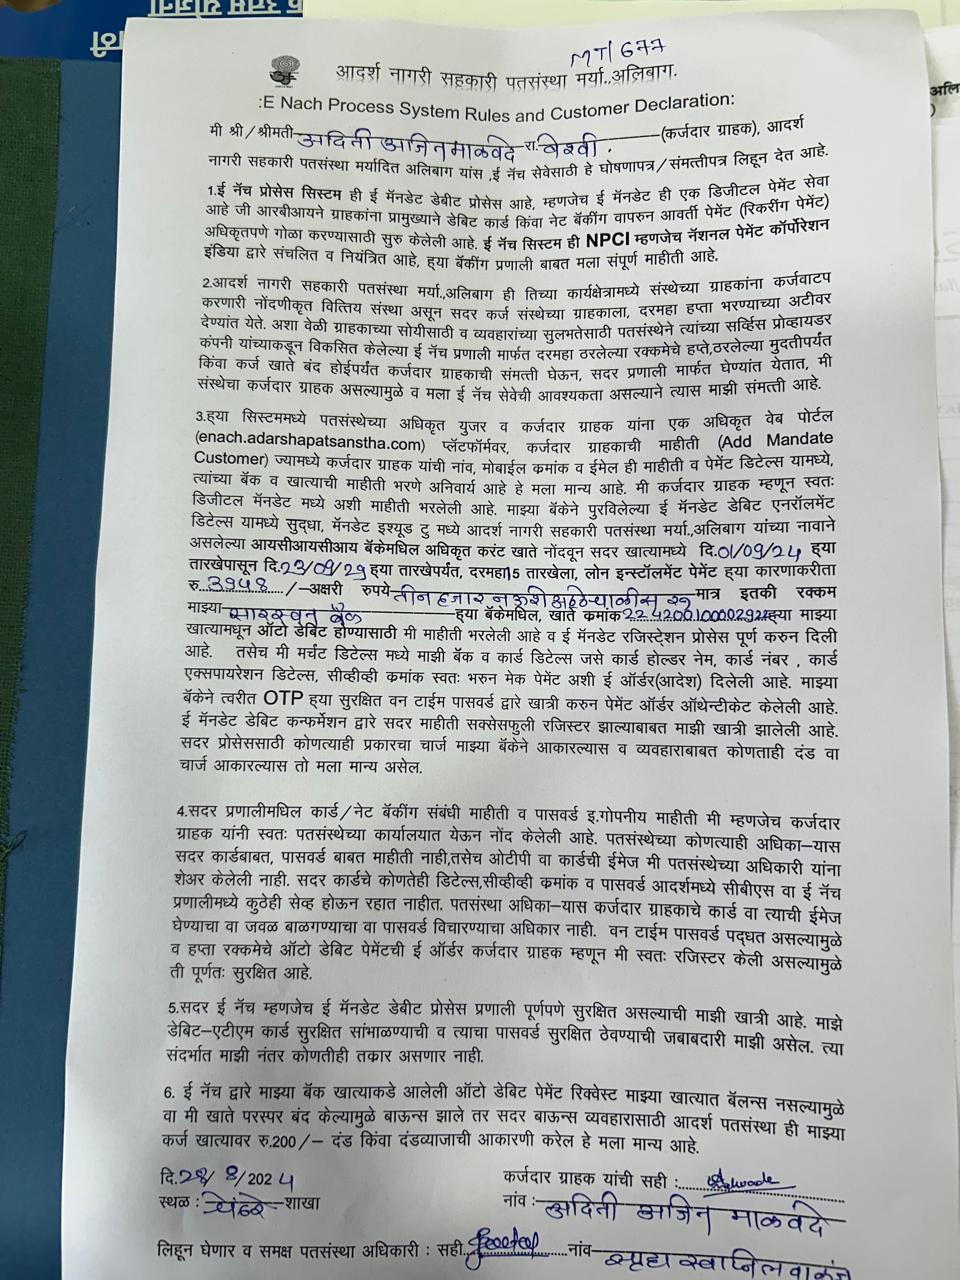 MT/677
आदर्श नागरी सहकारी पतसंस्था मर्या.,अलिबाग.
:E Nach Process System Rules and Customer Declaration:
मी श्री/श्रीमती अदिती अजिन माळवदे रा. वेश्वी. (कर्जदार ग्राहक), आदर्श
नागरी सहकारी पतसंस्था मर्यादित अलिबाग यांस ,ई नॅच सेवेसाठी हे घोषणापत्र/संमत्तीपत्र लिहून देत आहे.
1.ई नॅच प्रोसेस सिस्टिम ही ई मॅनडेट डेबीट प्रोसेस आहे, म्हणजेच ई मॅनडेट ही एक डिजीटल पेमेंट सेवा
आहे जी आरबीआयने ग्राहकांना प्रामुख्याने डेबिट कार्ड किंवा नेट बॅकींग वापरुन आवर्ती पेमेंट (रिकरींग पेमेंट)
अधिकृतपणे गोळा करण्यासाठी सुरु केलेली आहे. ई नॅच सिस्टम ही NPCI म्हणजेच नॅशनल पेमेंट कॉर्पोरेशन
इंडिया द्वारे संचलित व नियंत्रित आहे, ह्या बॅकींग प्रणाली बाबत मला संपूर्ण माहीती आहे.
2.आदर्श नागरी सहकारी पतसंस्था मर्या.,अलिबाग ही तिच्या कार्यक्षेत्रामध्ये संस्थेच्या ग्राहकांना कर्जवाटप
करणारी नोंदणीकृत वित्तिय संस्था असून सदर कर्ज संस्थेच्या ग्राहकाला, दरमहा हप्ता भरण्याच्या अटीवर
देण्यांत येते. अशा वेळी ग्राहकाच्या सोयीसाठी व व्यवहारांच्या सुलभतेसाठी पतसंस्थेने त्यांच्या सर्व्हिस प्रोव्हायडर
कंपनी यांच्याकडून विकसित केलेल्या ई नॅच प्रणाली मार्फत दरमहा ठरलेल्या रक्कमेचे हप्ते,ठरलेल्या मुदतीपर्यत
किंवा कर्ज खाते बंद होईपर्यंत कर्जदार ग्राहकाची संमत्ती घेऊन, सदर प्रणाली मार्फत घेण्यांत येतात, मी
संस्थेचा कर्जदार ग्राहक असल्यामुळे व मला ई नॅच सेवेची आवश्यकता असल्याने त्यास माझी संमत्ती आहे.
3.ह्या सिस्टिममध्ये पतसंस्थेच्या अधिकृत युजर व कर्जदार ग्राहक यांना एक अधिकृत वेब पोर्टल
(enach.adarshapatsanstha.com) प्लॅटफॉर्मवर, कर्जदार ग्राहकाची माहीती (Add Mandate
Customer) ज्यामध्ये कर्जदार ग्राहक यांची नांव, मोबाईल क्रमांक व ईमेल ही माहीती व पेमेंट डिटेल्स यामध्ये,
त्यांच्या बॅक व खात्याची माहीती भरणे अनिवार्य आहे हे मला मान्य आहे. मी कर्जदार ग्राहक म्हणून स्वतः
डिजीटल मॅनडेट मध्ये अशी माहीती भरलेली आहे. माझ्या बॅकेने पुरविलेल्या ई मॅनडेट डेबिट एनरॉलमेंट
डिटेल्स यामध्ये सुद्धा, मॅनडेट इश्यूड टु मध्ये आदर्श नागरी सहकारी पतसंस्था मर्या.,अलिबाग यांच्या नावाने
असलेल्या आयसीआयसीआय बॅकेमधिल अधिकृत करंट खाते नोंदवून सदर खात्यामध्ये दि.01/09/24 ह्या
तारखेपासून दि.23/09/29 ह्या तारखेपर्यंत, दरमहा 15 तारखेला, लोन इन्स्टॉलमेंट पेमेंट ह्या कारणाकरीता
रु. 3948 /-अक्षरी रुपये तीन हजार नऊशे अठ्ठेचाळीस रु मात्र इतकी रक्कम
माझ्या सारस्वत बँक ह्या बॅकेमधिल, खाते क्रमांक ह्या माझ्या
खात्यामधून ऑटो डेबिट होण्यासाठी मी माहीती भरलेली आहे व ई मॅनडेट रजिस्ट्रेशन प्रोसेस पूर्ण करुन दिली
आहे. तसेच मी मर्चंट डिटेल्स मध्ये माझी बॅक व कार्ड डिटेल्स जसे कार्ड होल्डर नेम, कार्ड नंबर , कार्ड
एक्सपायरेशन डिटेल्स, सीव्हीव्ही क्रमांक स्वतः भरुन मेक पेमेंट अशी ई ऑर्डर(आदेश) दिलेली आहे. माझ्या
बॅकेने त्वरीत OTP ह्या सुरक्षित वन टाईम पासवर्ड द्वारे खात्री करुन पेमेंट ऑर्डर ऑथेन्टीकेट केलेली आहे.
ई मॅनडेट डेबिट कन्फर्मेशन द्वारे सदर माहीती सक्सेसफुली रजिस्टर झाल्याबाबत माझी खात्री झालेली आहे.
सदर प्रोसेससाठी कोणत्याही प्रकारचा चार्ज माझ्या बॅकेने आकारल्यास व व्यवहाराबाबत कोणताही दंड वा
चार्ज आकारल्यास तो मला मान्य असेल.
4.सदर प्रणालीमधिल कार्ड/नेट बॅकींग संबंधी माहीती व पासवर्ड इ.गोपनीय माहीती मी म्हणजेच कर्जदार
ग्राहक यांनी स्वतः पतसंस्थेच्या कार्यालयात येऊन नोंद केलेली आहे. पतसंस्थेच्या कोणत्याही अधिका-यास
सदर कार्डबाबत, पासवर्ड बाबत माहीती नाही,तसेच ओटीपी वा कार्डची ईमेज मी पतसंस्थेच्या अधिकारी यांना
शेअर केलेली नाही. सदर कार्डचे कोणतेही डिटेल्स,सीव्हीव्ही क्रमांक व पासवर्ड आदर्शमध्ये सीबीएस वा ई नॅच
प्रणालीमध्ये कुठेही सेव्ह होऊन रहात नाहीत. पतसंस्था अधिका-यास कर्जदार ग्राहकाचे कार्ड वा त्याची ईमेज
घेण्याचा वा जवळ बाळगण्याचा वा पासवर्ड विचारण्याचा अधिकार नाही. वन टाईम पासवर्ड पद्धत असल्यामुळे
व हप्ता रक्कमेचे ऑटो डेबिट पेमेंटची ई ऑर्डर कर्जदार ग्राहक म्हणून मी स्वतः रजिस्टर केली असल्यामुळे
ती पूर्णतः सुरक्षित आहे.
5.सदर ई नॅच म्हणजेच ई मॅनडेट डेबीट प्रोसेस प्रणाली पूर्णपणे सुरक्षित असल्याची माझी खात्री आहे. माझे
डेबिट-एटीएम कार्ड सुरक्षित सांभाळण्याची व त्याचा पासवर्ड सुरक्षित ठेवण्याची जबाबदारी माझी असेल. त्या
संदर्भात माझी नंतर कोणतीही तकार असणार नाही.
6. ई नॅच द्वारे माझ्या बॅक खात्याकडे आलेली ऑटो डेबिट पेमेंट रिक्वेस्ट माझ्या खात्यात बॅलन्स नसल्यामुळे
वा मी खाते परस्पर बंद केल्यामुळे बाऊन्स झाले तर सदर बाऊन्स व्यवहारासाठी आदर्श पतसंस्था ही माझ्या
कर्ज खात्यावर रु.200/- दंड किंवा दंडव्याजाची आकारणी करेल हे मला मान्य आहे.
दि.28/8/2024 कर्जदार ग्राहक यांची सही :
स्थळ : शाखा नांव : अदिती अजिन माळवदे
लिहून घेणार व समक्ष पतसंस्था अधिकारी : सही नांव